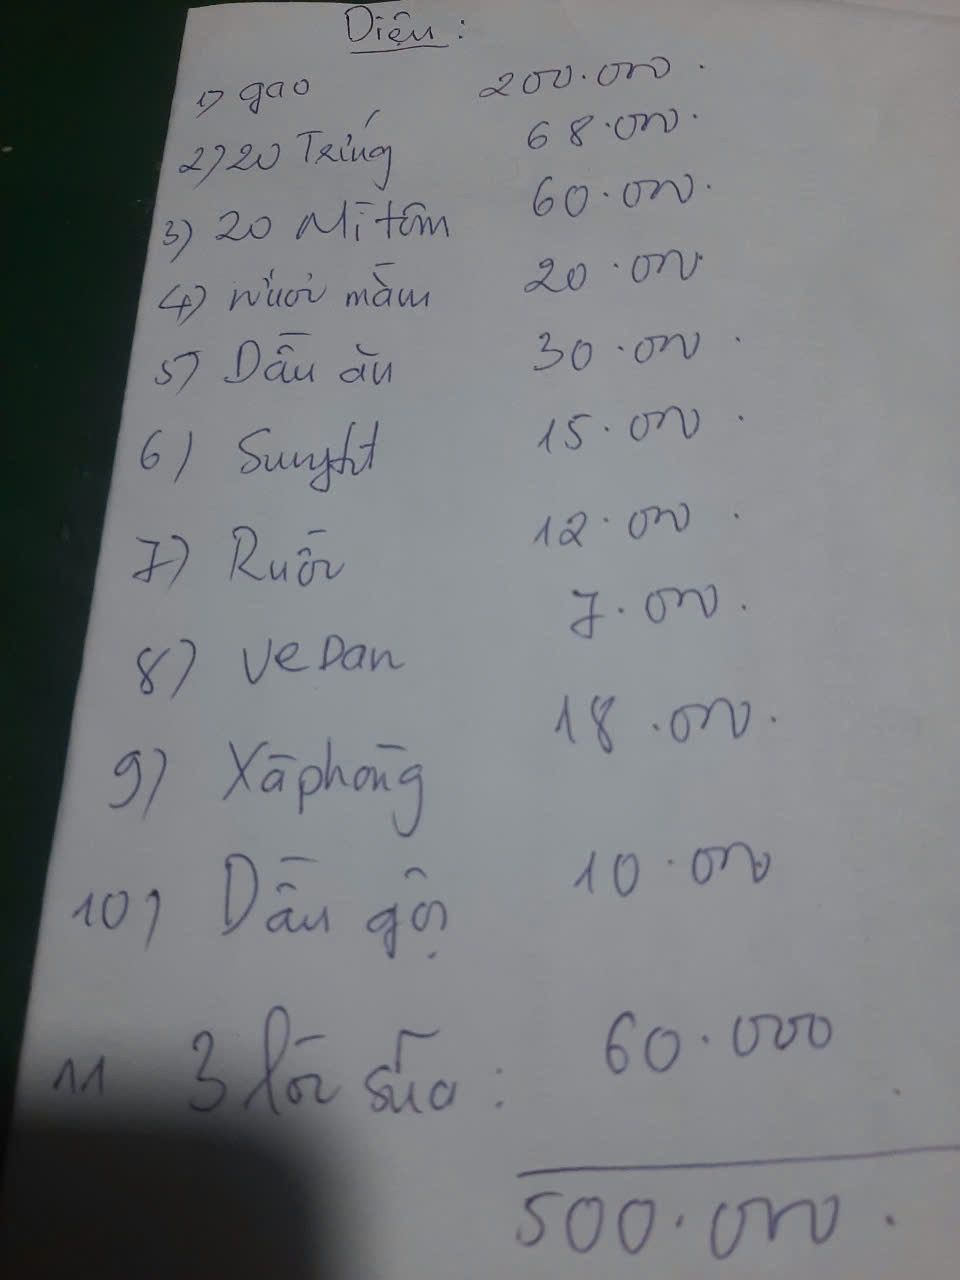 Diệu:
1) gạo 200.000.
2) 20 Trứng 68.000.
3) 20 Mì tôm 60.000.
4) Nước mắm 20.000
5) Dầu ăn 30.000.
6) Sunlight 15.000.
7) Ruốc 12.000.
8) VeDan 7.000.
9) Xà phòng 18.000.
10) Dầu gội 10.000
11 3 lốc sữa: 60.000
500.000.